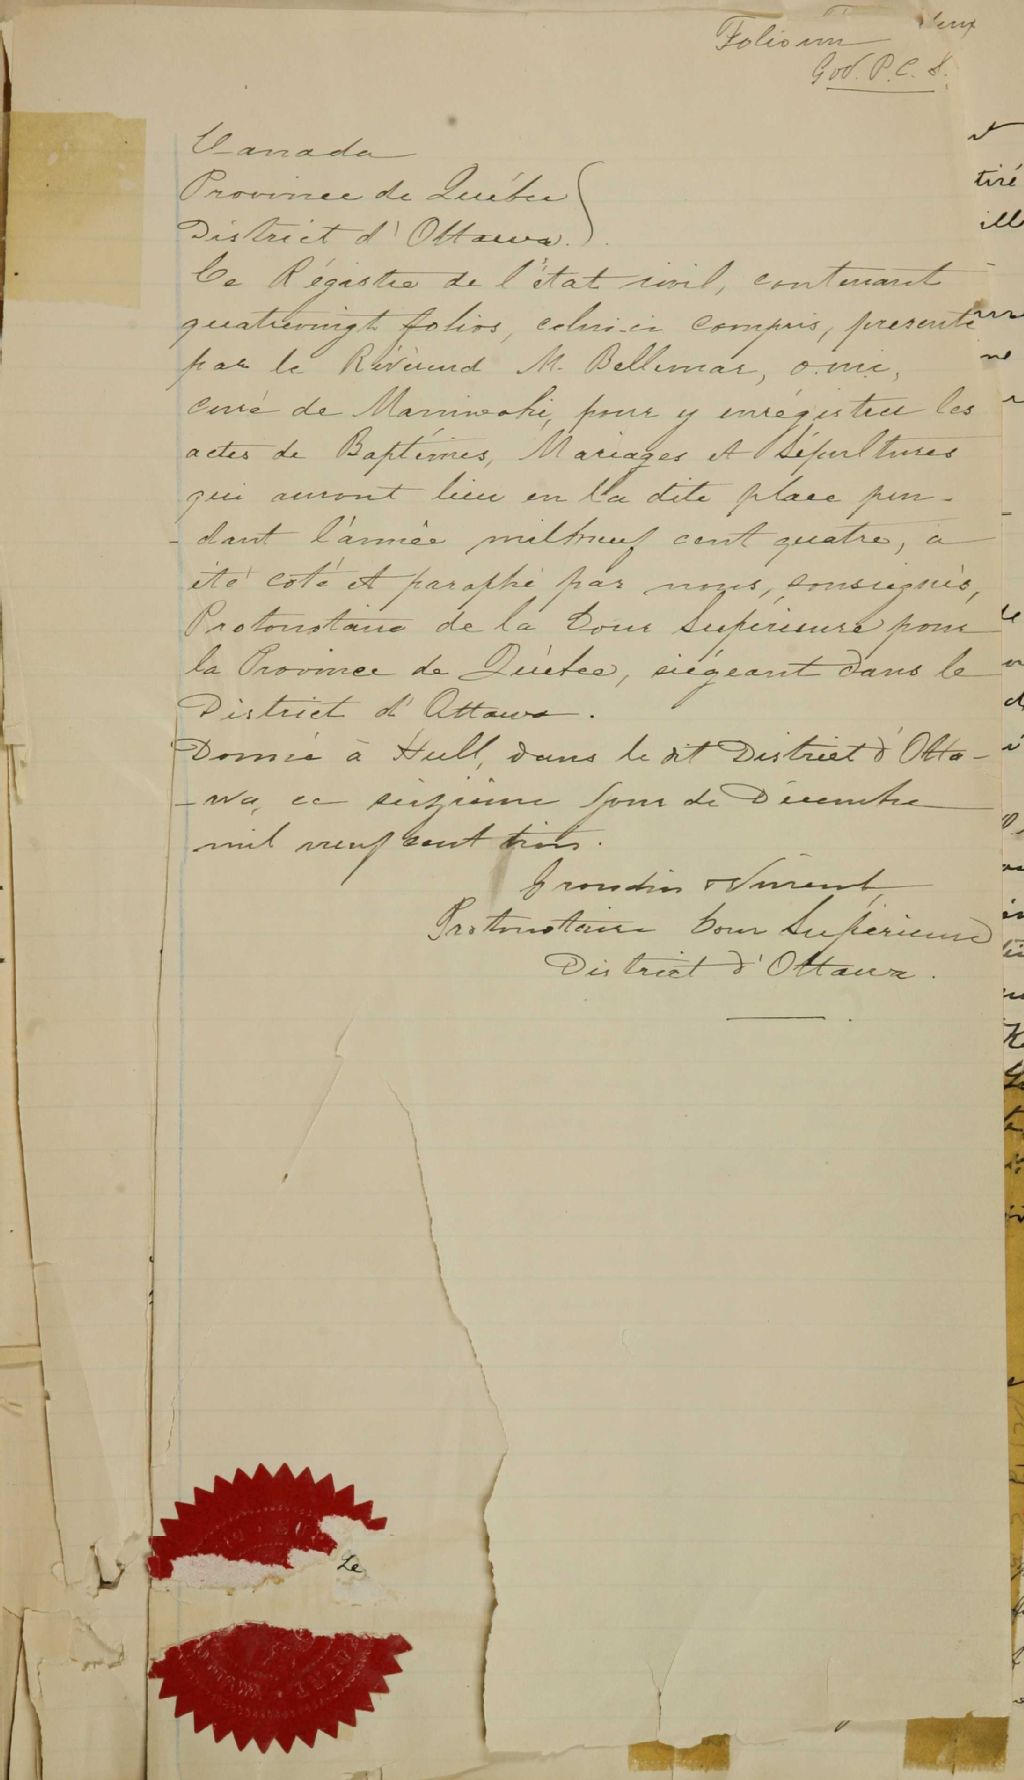 Folio un
G & V. P.C.S.
Canada
Province de Québec
District d'Ottawa.
Ce Régistre de l'état civil, contenant
quatrevingt folios, celui-ci compris, presenté
par le Révérend M. Bellemar, o.m.i,
curé de Maniwaki, pour y enrégistrer les
actes de Baptêmes, Mariages et Sépultures
qui auront lieu en la dite place pen-
-dant l'année mil neuf cent quatre, a
été coté et paraphé par nous, soussignés,
Protonotaire de la Cour Supérieure pour
la Province de Québec, siégeant dans le
District d'Ottawa.
Donné à Hull, dans le dit District d'Otta-
-wa, ce seizième jour de Décembre
mil neuf cent trois.
Grondin & Vincent,
Protonotaire Cour Supérieure
District d'Ottawa.
Le